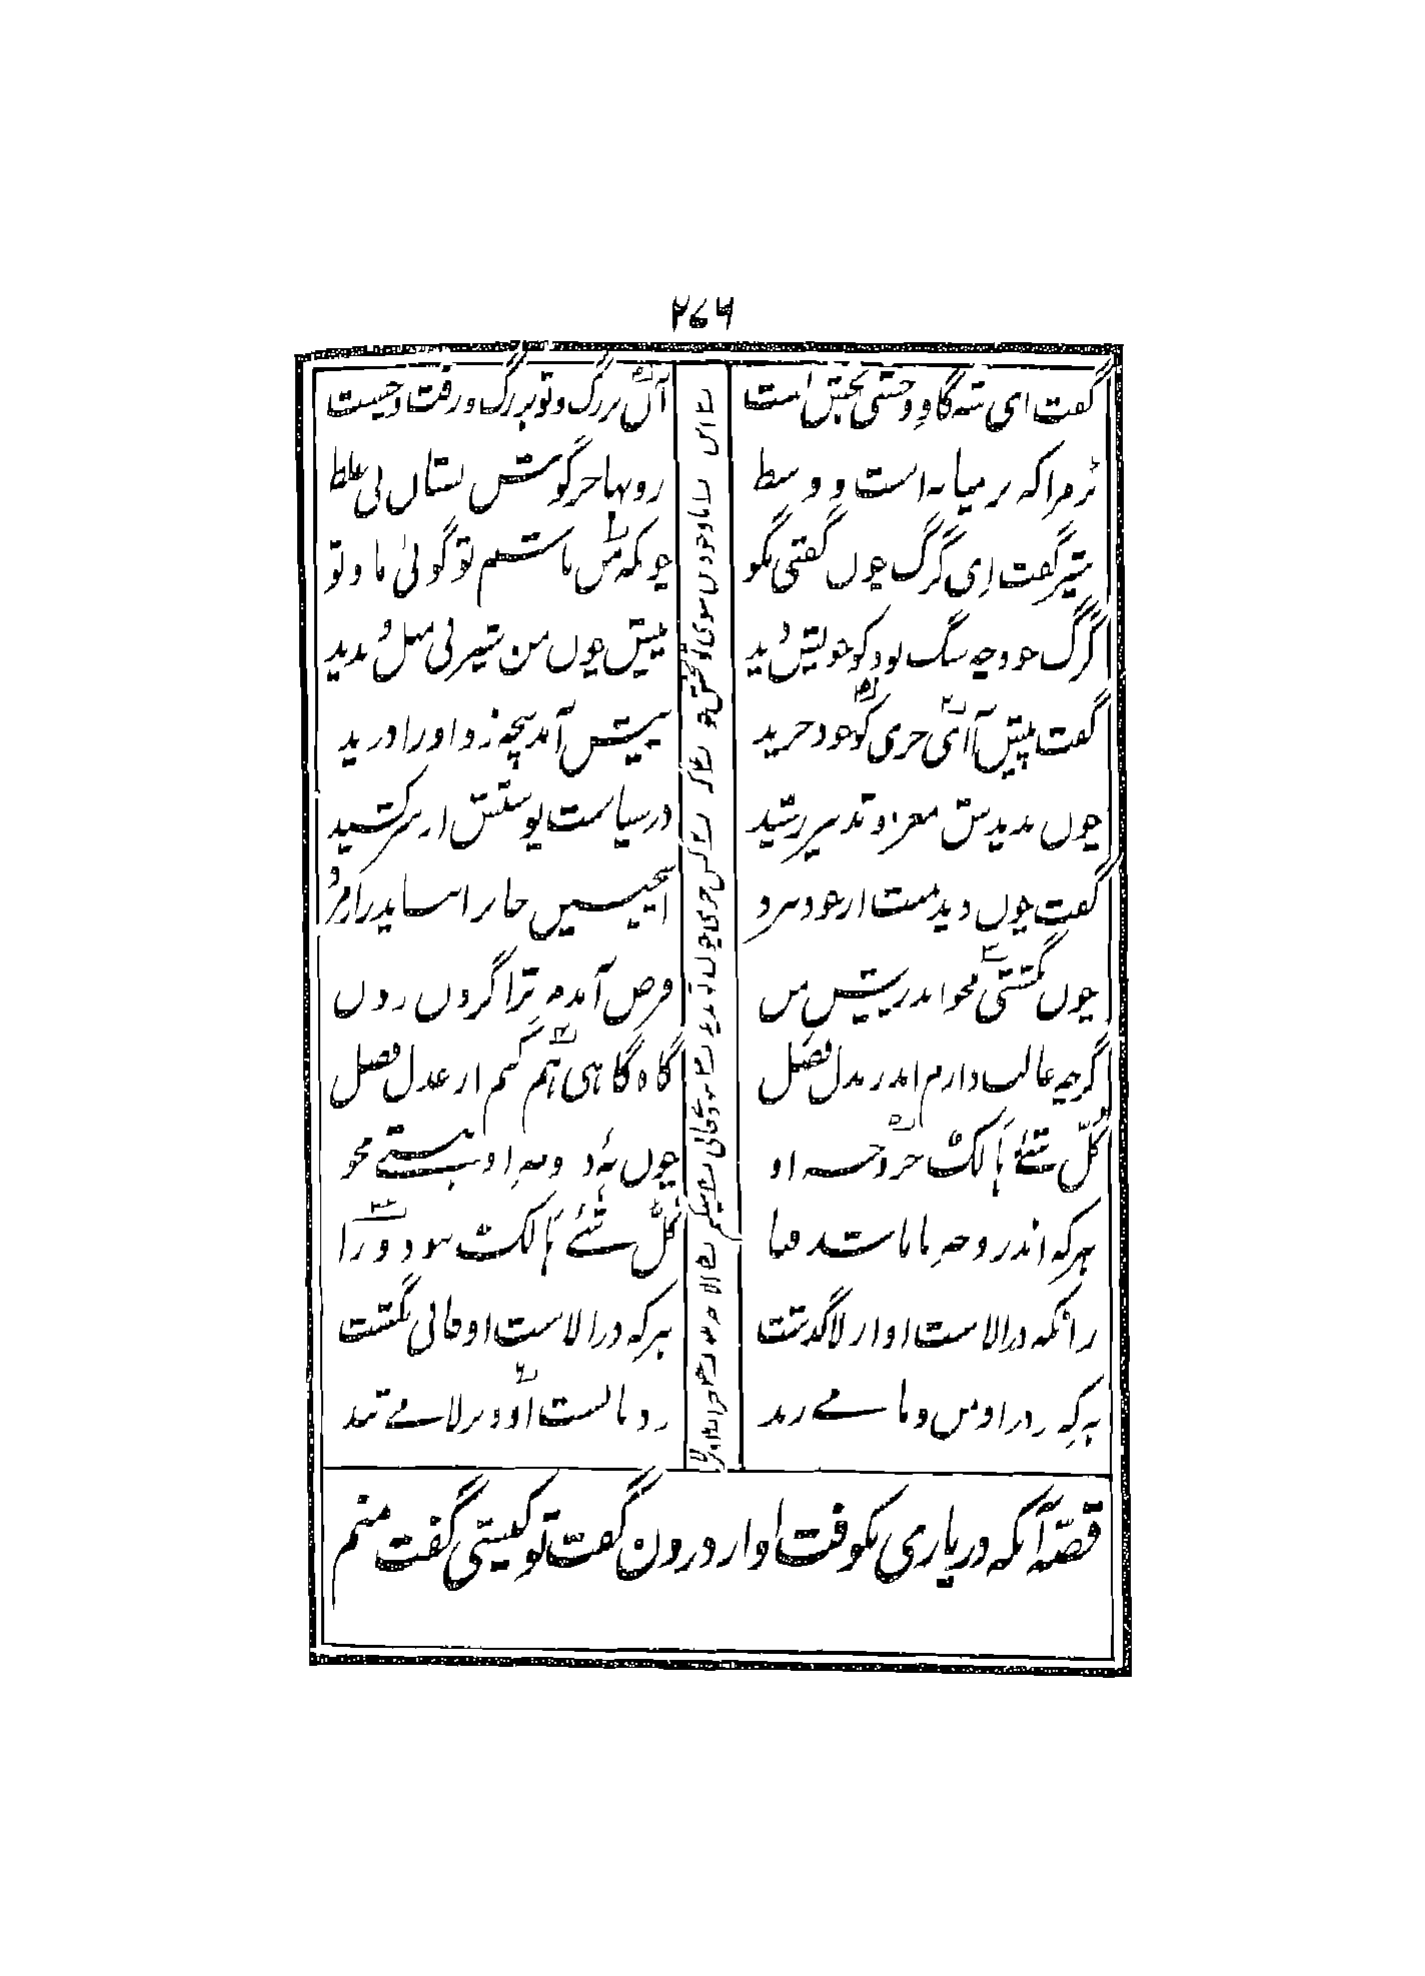 ۲۷۶
گفت ای شه گاو وحشی بخش تست
آن بزرگ و تو بزرگ و زفت و چست
بز مرا که بز میانه است و وسط
روبها خرگوش بستان بی غلط
شیر گفت ای گرگ چون گفتی بگو
چونکه من باشم تو گوئی ما و تو
گرگ خود چه سگ بود کو خویش دید
پیش چون من شیر بی مثل و ندید
گفت پیش آ ای خری کو خود خرید
پیشش آمد پنجه زد او را درید
چون ندیدش مغز و تدبیر رشید
در سیاست پوستش از سر کشید
گفت چون دید منت از خود نبرد
اینچنین جان را بباید زار مرد
چون نگشتی فانی اندر پیش من
فرض آمد مر ترا گردن زدن
گرچه غالب دارم اندر بذل فضل
گاه گاهی هم کنم از عدل فصل
کل شئ هالک جز وجه او
چون نهٔ در وجه او هستی مجو
هر که اندر وجه ما باشد فنا
کل شئ هالک نبود ورا
زانکه در الاست او از لا گذشت
هر که در الاست او فانی نگشت
هر که بر در او من و ما می زند
رد بابست او و بر لا می تند
قصّه آنکه در یاری بکوفت او از درون گفت تو کیستی گفت منم